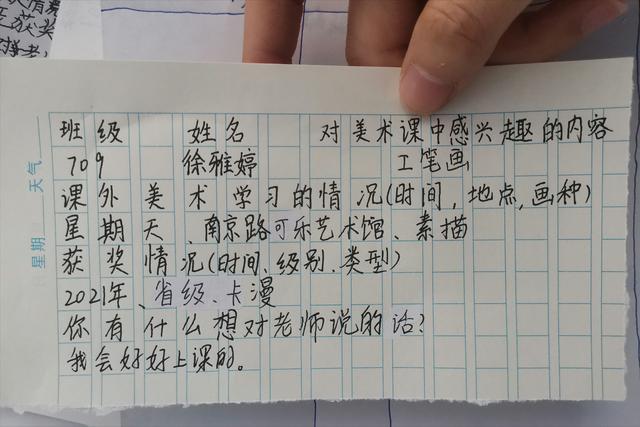 天气
星期
班级 姓名 对美术课中感兴趣的内容
709 徐雅婷 工笔画
课外美术学习的情况(时间,地点,画种)
星期天、南京路可乐艺术馆、素描
获奖情况(时间、级别、类型)
2021年、省级、卡漫
你有什么想对老师说的话?
我会好好上课的。